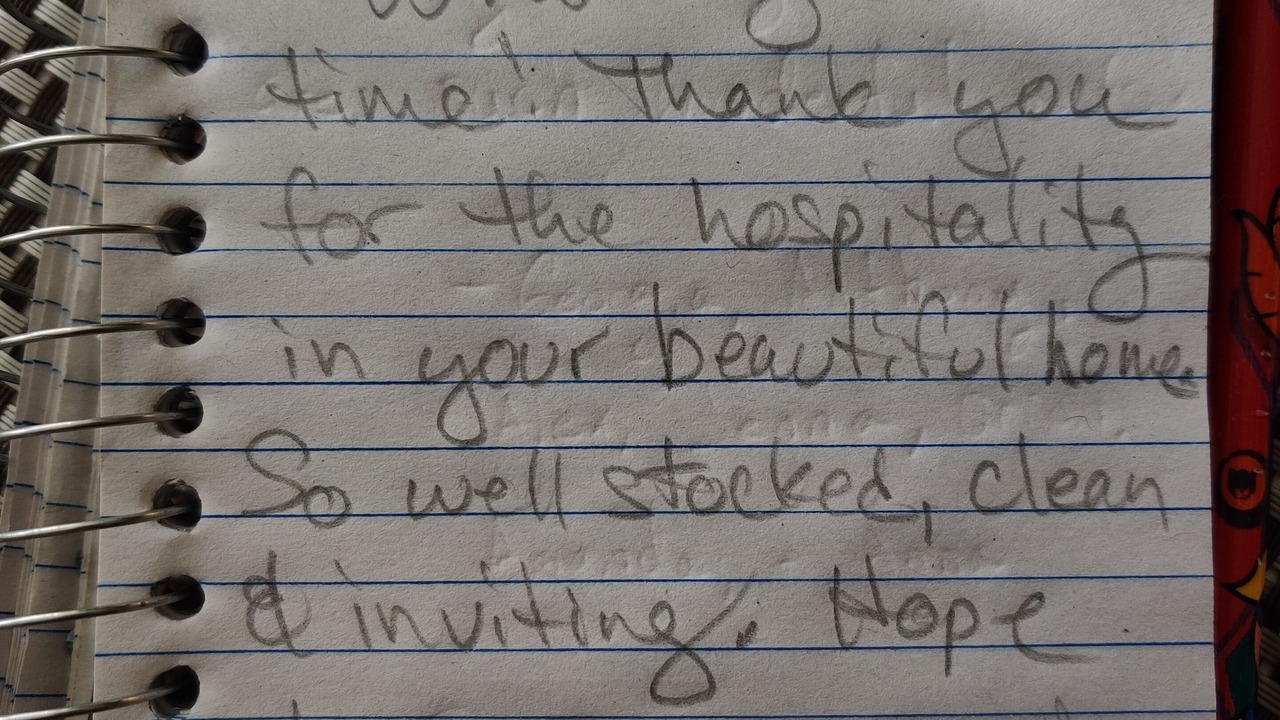 time! Thank you
for the hospitality
in your beautiful home.
So well stocked, clean
& inviting. Hope